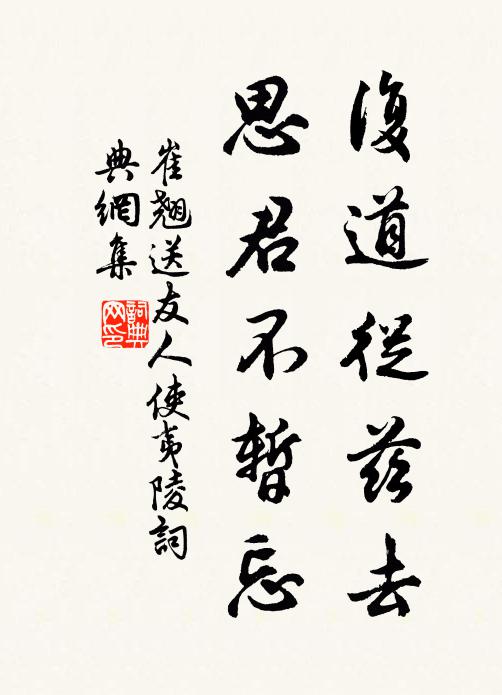 復道從茲去
思君不暫忘
崔翹送友人使夷陵詞
典網集
詞典
网印